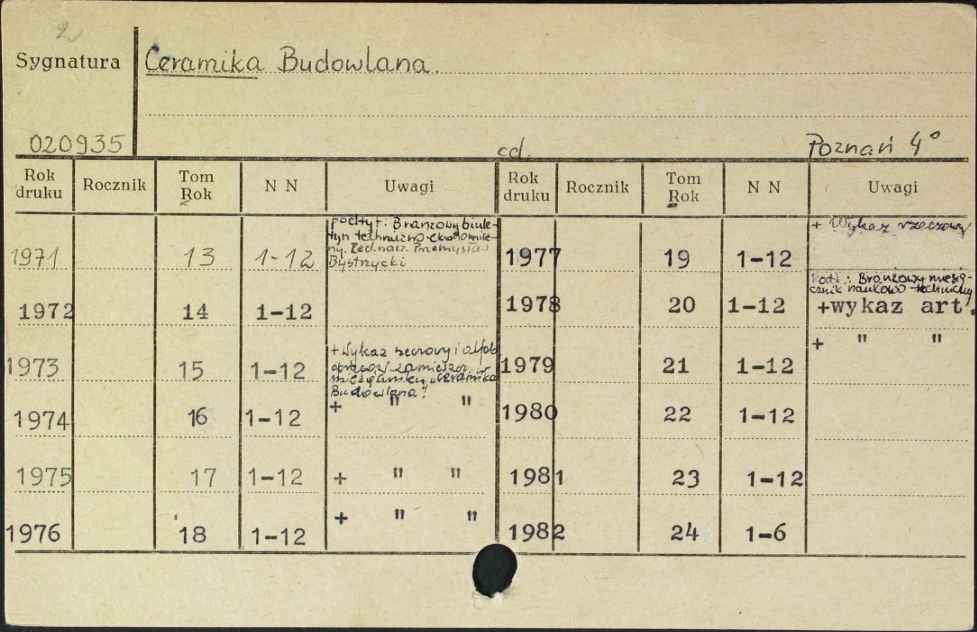 2
Sygnatura Ceramika Budowlana.
020935 cd. Poznań 4°
Rok druku Rocznik Tom Rok N N Uwagi Rok druku Rocznik Tom Rok N N Uwagi
1971 13 1-12
Podtyt.: Branżowy biule-
tyn techniczno-ekonomicz-
ny. Red. nacz. Przemysław
Bystrzycki
1977 19 1-12 + Wykaz rzeczowy
1972 14 1-12
1978 20 1-12
Podt.: Branżowy miesię-
cznik naukowo-techniczny
+wykaz art.
1973 15 1-12
+Wykaz rzeczowy i alfab.
zamieszcz. w
miesięczniku "Ceramika
Budowlana".
1979 21 1-12 + " "
1974 16 1-12 + " "
1980 22 1-12
1975 17 1-12 + " "
1981 23 1-12
1976 18 1-12 + " "
1982 24 1-6